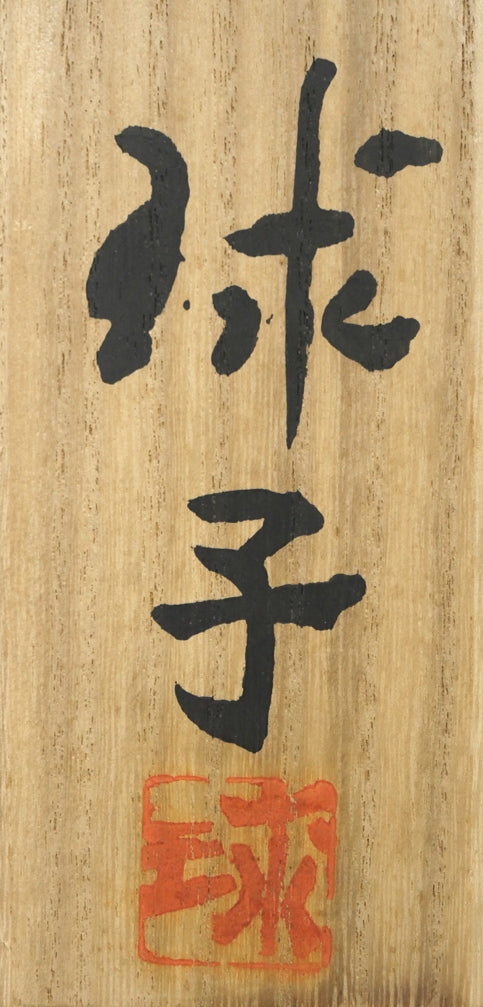 球子
球